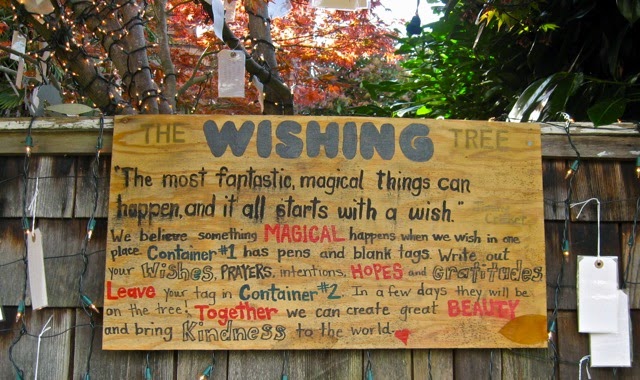 THE WISHING TREE
"The most fantastic, magical things can
happen, and it all starts with a wish."
We believe something MAGICAL happens when we wish in one
place. Container #1 has pens and blank tags. Write out
your Wishes, PRAYERS, intentions, HOPES and Gratitudes.
Leave your tag in Container #2. In a few days they will be
on the tree! Together we can create great BEAUTY
and bring Kindness to the world.